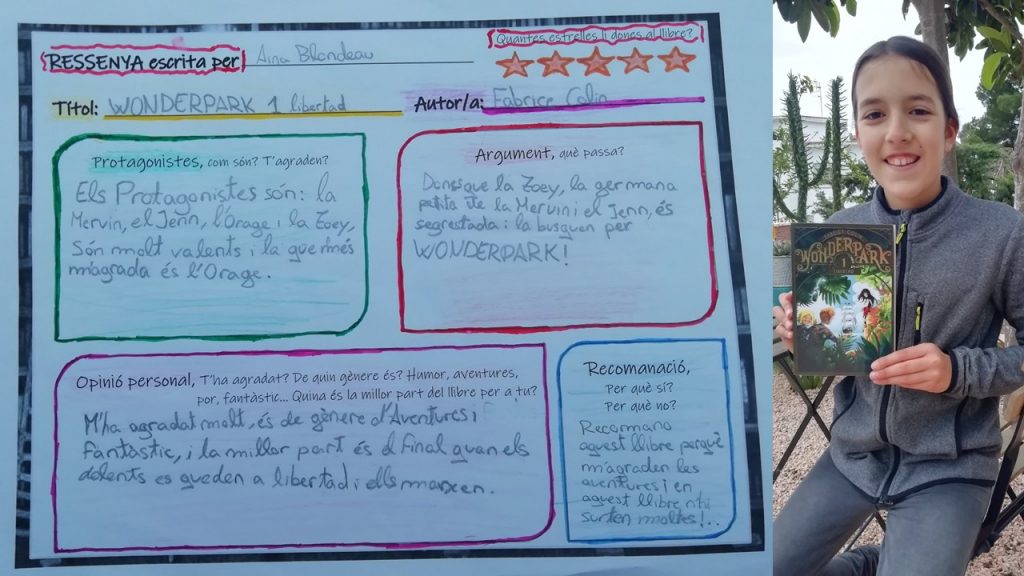 RESSENYA escrita per Aina Blondeau
Quantes estrelles li dones al llibre?
Títol: WONDERPARK 1 libertad
Autor/a: Fabrice Colin
Protagonistes, com són? T'agraden?
Els Protagonistes són: la
Mervin, el Jenn, l'Orage i la Zoey,
Són molt valents i la que més
m'agrada és l'Orage.
Argument, què passa?
Donsque la Zoey, la germana
petita de la Mervin i el Jenn, és
segrestada i la busquen per
WONDERPARK!
Opinió personal, T'ha agradat? De quin gènere és? Humor, aventures,
por, fantàstic... Quina és la millor part del llibre per a tu?
M'ha agradat molt, és de gènere d'Aventures i
Fantàstic, i la millor part és el final quan els
dolents es queden a libertad i ells marxen.
Recomanació,
Per què sí?
Per què no?
Recormano
aquest llibre perquè
m'agraden les
aventures i en
aquest llibre n'hi
surten moltes!..
WONDERPARK
1
LIBERTAD